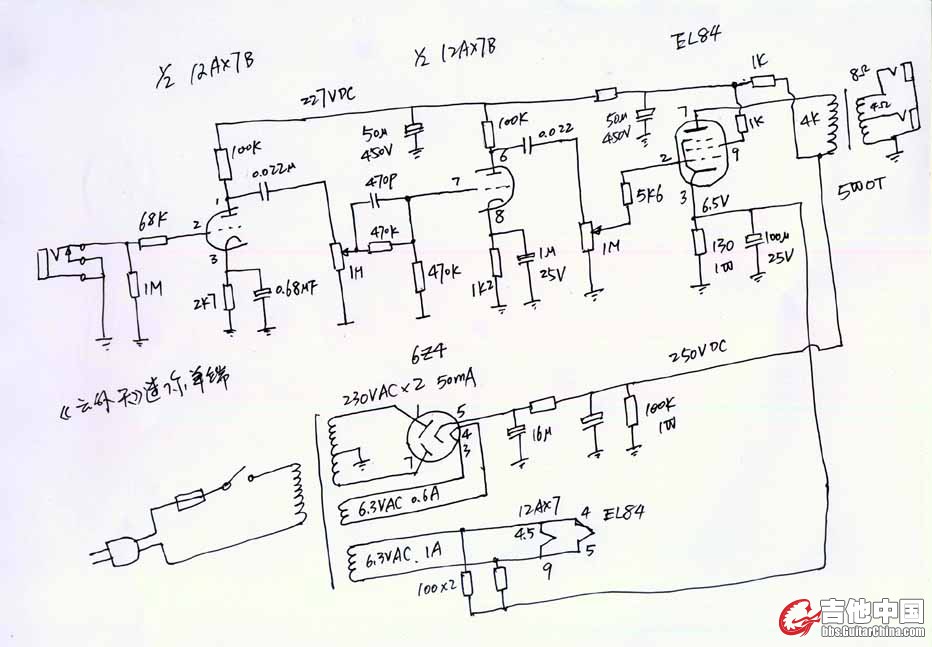 ½ 12AX7B
½ 12AX7B
EL84
227VDC
1K
8Ω
4Ω
100K
50μ
450V
100K
0.022
50μ
450V
7
1K
4K
0.022μ
6
470P
7
2
9
1
5K6
3
5WOT
68K
2
470K
8
6.5V
3
1M
1M
470K
1M
25V
1M
130
1W
100μ
25V
2K7
0.68μF
1K2
6Z4
250VDC
230VAC×2 50mA
1
5
4
3
7
16μ
100K
1W
6.3VAC 0.6A
12AX7
4
EL84
6.3VAC. 1A
4.5
5
9
100×2
吉他中国
bbs.GuitarChina.com